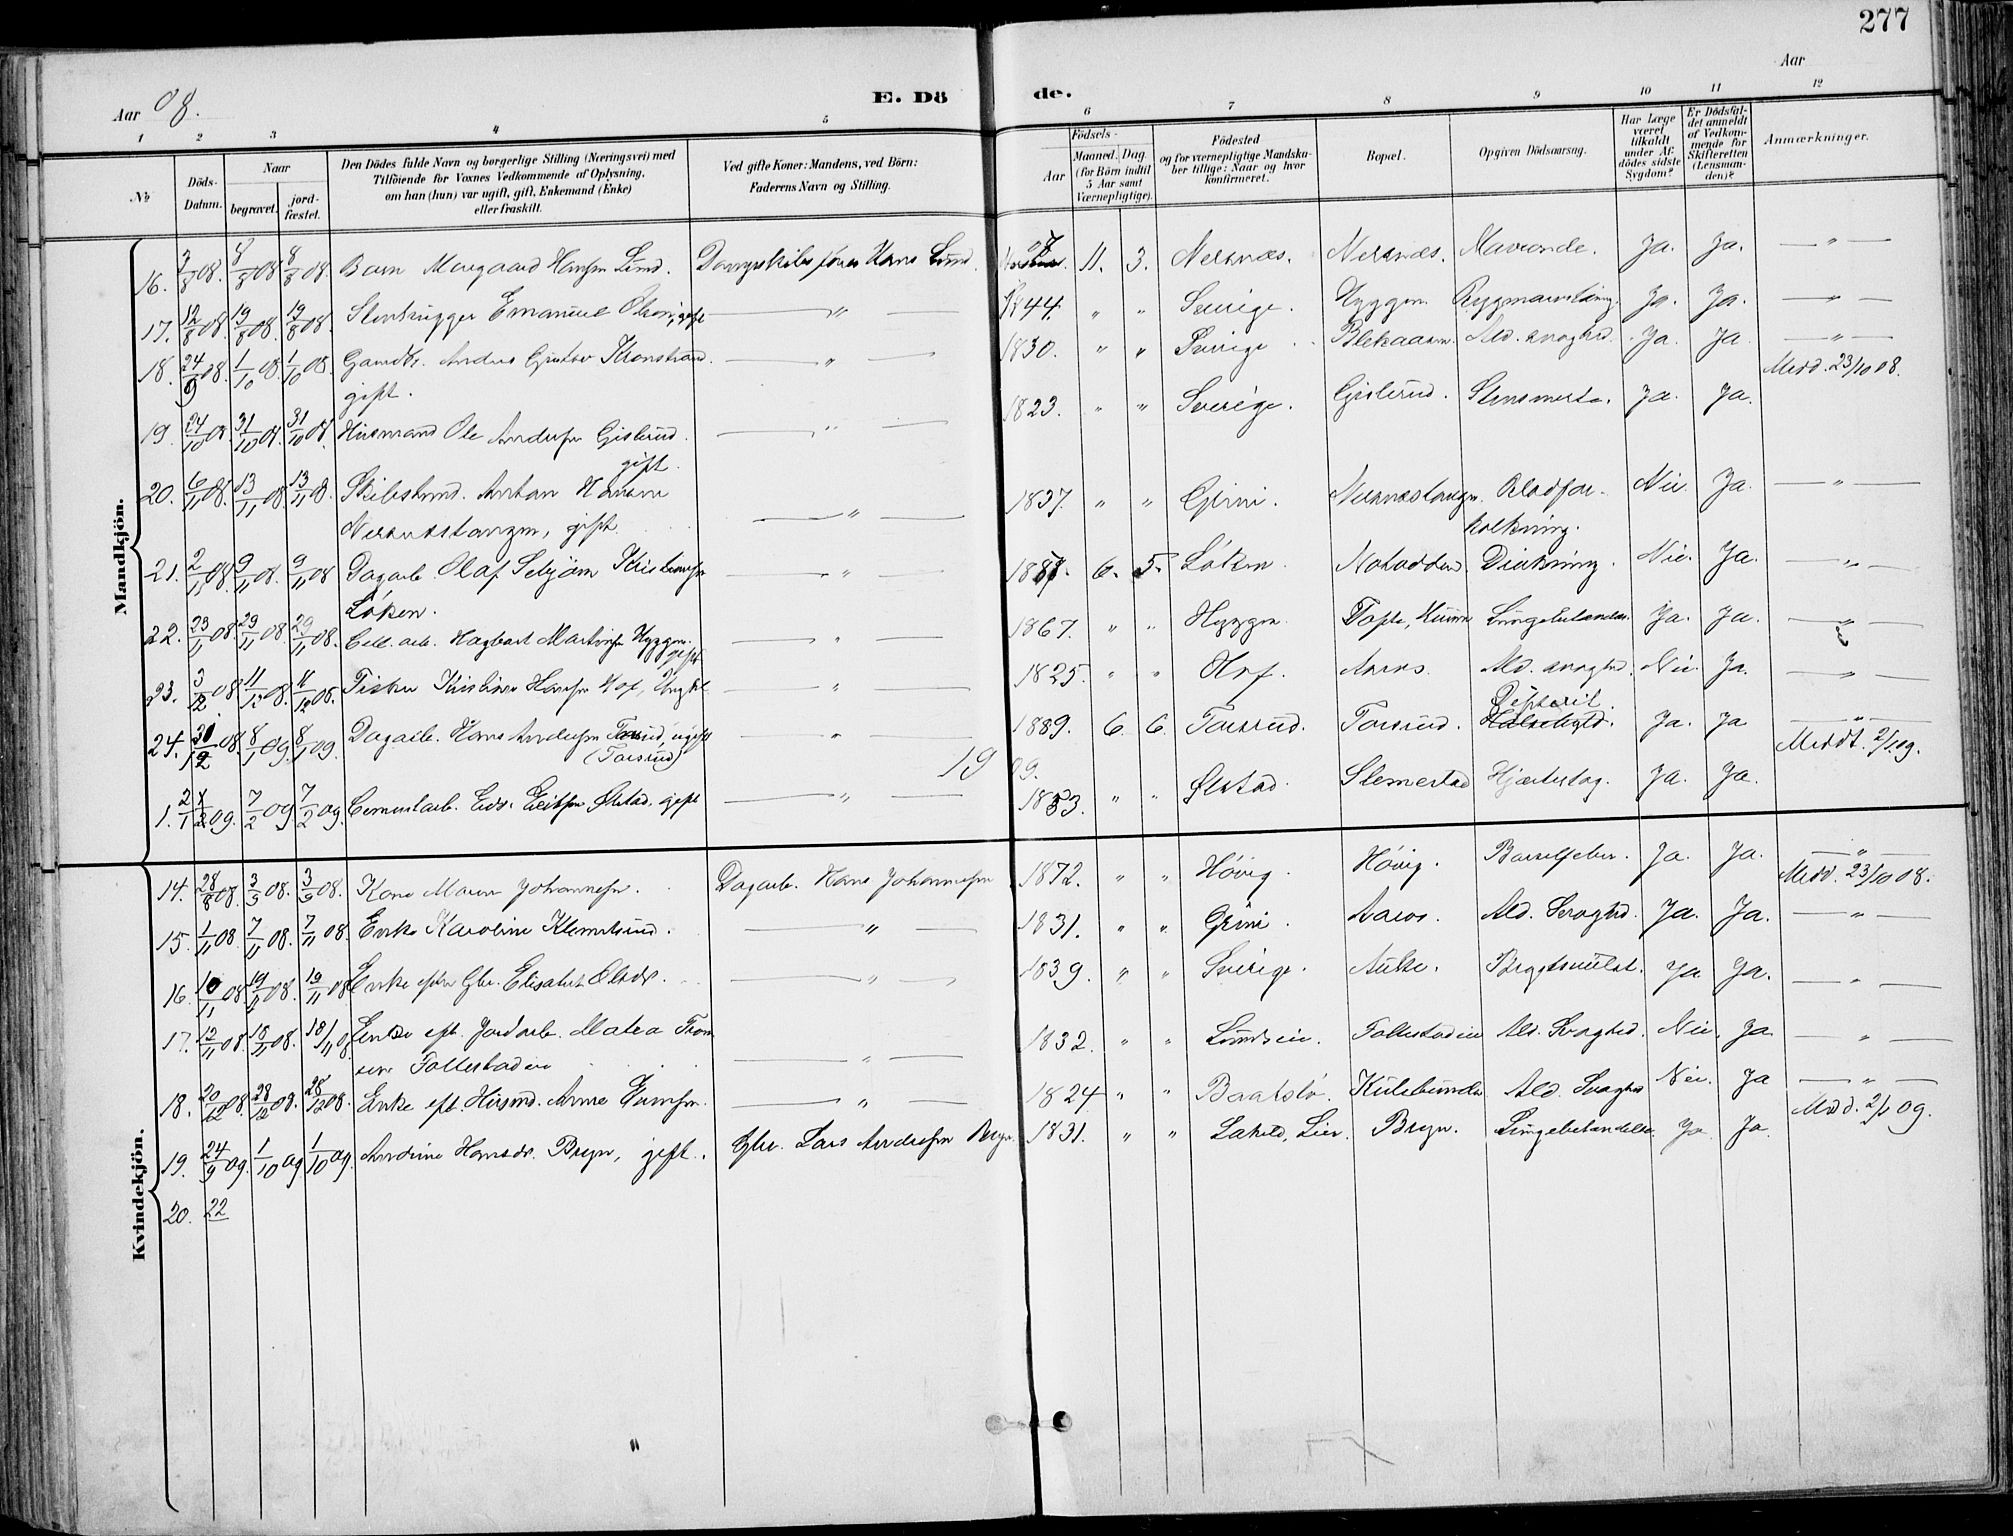 277
Aar 08.
E. Dö
de.
Aar
1 2 3 4 5 6 7 8 9 10 11 12
No
Döds-Datum.
Naar
begravet.
jord-fæstet.
Den Dödes fulde Navn og borgerlige Stilling (Næringsvei) med
Tilföiende for Voxnes Vedkommende af Oplysning,
om han (hun) var ugift, gift, Enkemand (Enke)
eller fraskilt.
Ved gifte Koner: Mandens, ved Börn:
Faderens Navn og Stilling.
Födsels-
Aar
Maaned. Dag.
(for Börn indtil
5 Aar samt
Værnepligtige).
Födested
og for værnepligtige Mandska-
ber tillige: Naar og hvor
konfirmeret.
Bopæl.
Opgiven Dödsaarsag.
Har Læge
været
tilkaldt
under Af-
dödes sidste
Sygdom?
Er Dödsfal-
det anmeldt
af Vedkom-
mende for
Skifteretten
(Lensman-
den)?
Anmærkninger.
Mandkjön.
16. 8/8 08. 8/8 08. Barn Hansen Lund. Dampskibsfører Hans Lund. 07 11. 3. Nersnæs. Nersnæs. Mavionde. Ja. Ja. — " —
17. 12/8 08. 19/8 08. 19/8 08. Stenhugger Emanuel Olsen, gift — " — 1844. " " Sverige. Hyggen. Ja. Ja. — " —
18. 24/9 08. 1/10 08. 1/10 08. Anders Gustav Kronstrand. — " — 1830. " " Sverige. Ald. svaghed. Ja. Ja. — " —
gift. Medd. 23/10 08.
19. 24/10 08. 31/10 08. 31/10 08. Husmand Ole Andersen Gislerud. — " — 1823. " " Sverige. Gislerud. Stensmerte. Ja. Ja.
gift.
20. 6/11 08. 13/11 08. 13/11 08. Skibstmd. Anton Hansen
Nersnestangen, gift. — " — 1837. " " Grini. Nersnestangen. Blodfor-
kalkning. Nei. Ja. — " —
21. 2/11 08. 9/11 08. 9/11 08. Dagarb. Olaf Kristiansen — " — 1887. 6. 5. Løken. Notodden. Drukning. Nei. Ja. — " —
Løken.
22. 23/11 08. 29/11 08. 29/11 08. Cell. arb. Hagbart Martinsen Hyggen. — " — 1867. " " Hyggen. Tofte, Hurum Lungebetændelse. Ja. Ja. — " —
gift
23. 3/12 08. 11/12 08. 11/12 08. Fisker Kristian Hansen Hof, Ungkl. — " — 1825. " " Hof. Aaros. Ald. svaghed. Nei. Ja. — " —
24. 31/12 08. 8/1 09. 8/1 09. Dagarb. Hans Andersen Torsrud, ugift — " — 1889. 6. 6. Torsrud. Torsrud. Difterit. Ja. Ja. — " —
(Torsrud) Meddt. 2/1 09.
1909.
1. 7/2 09. 7/2 09. Cementarb. Edv. Eriksen Ølstad, gift — " — 1853. " " Ølstad. Slemestad Hjerteslag. Ja. Ja.
Kvindekjön.
14. 28/8 08. 3/9 08. 3/9 08. Kone Maren Johannesen. Dagarb. Hans Johannesen 1872. " " Høvig. Høvig. Barselfeber. Ja. Ja. — " —
Medd. 23/10 08.
15. 1/11 08. 7/11 08. 7/11 08. Enke Karoline Klemetsrud. — " — 1831. " " Grini. Aaros. Ald. Svaghed. Ja. Ja. — " —
16. 10/11 08. 19/11 08. 19/11 08. Enke efter Gbr. Elisabet Olsdr. — " — 1839. " " Sverige. Aulie. Brystsvulst. Ja Ja. — " —
17. 12/11 08. 18/11 08. 18/11 08. Enke eft. Jordarb. Matea Thom-
Follestadeie — " — 1832. " " Lundseie. Follestadeie Ald. Svaghed. Nei. Ja — " —
18. 20/12 08. 28/12 08. 28/12 08. Enke eft. Husmd. Anne — " — 1824 " " Baatstø. Kulebunden Ald. Svaghed Nei. Ja — " —
Medd. 2/1 09.
19. 24/9 09. 1/10 09. 1/10 09. Andrine Hansdr. Bryn, gift. Gbr. Lars Andersen Bryn. 1831. " " Lahell, Lier. Bryn. Lungebetændelse. Ja. Ja.
20. 22